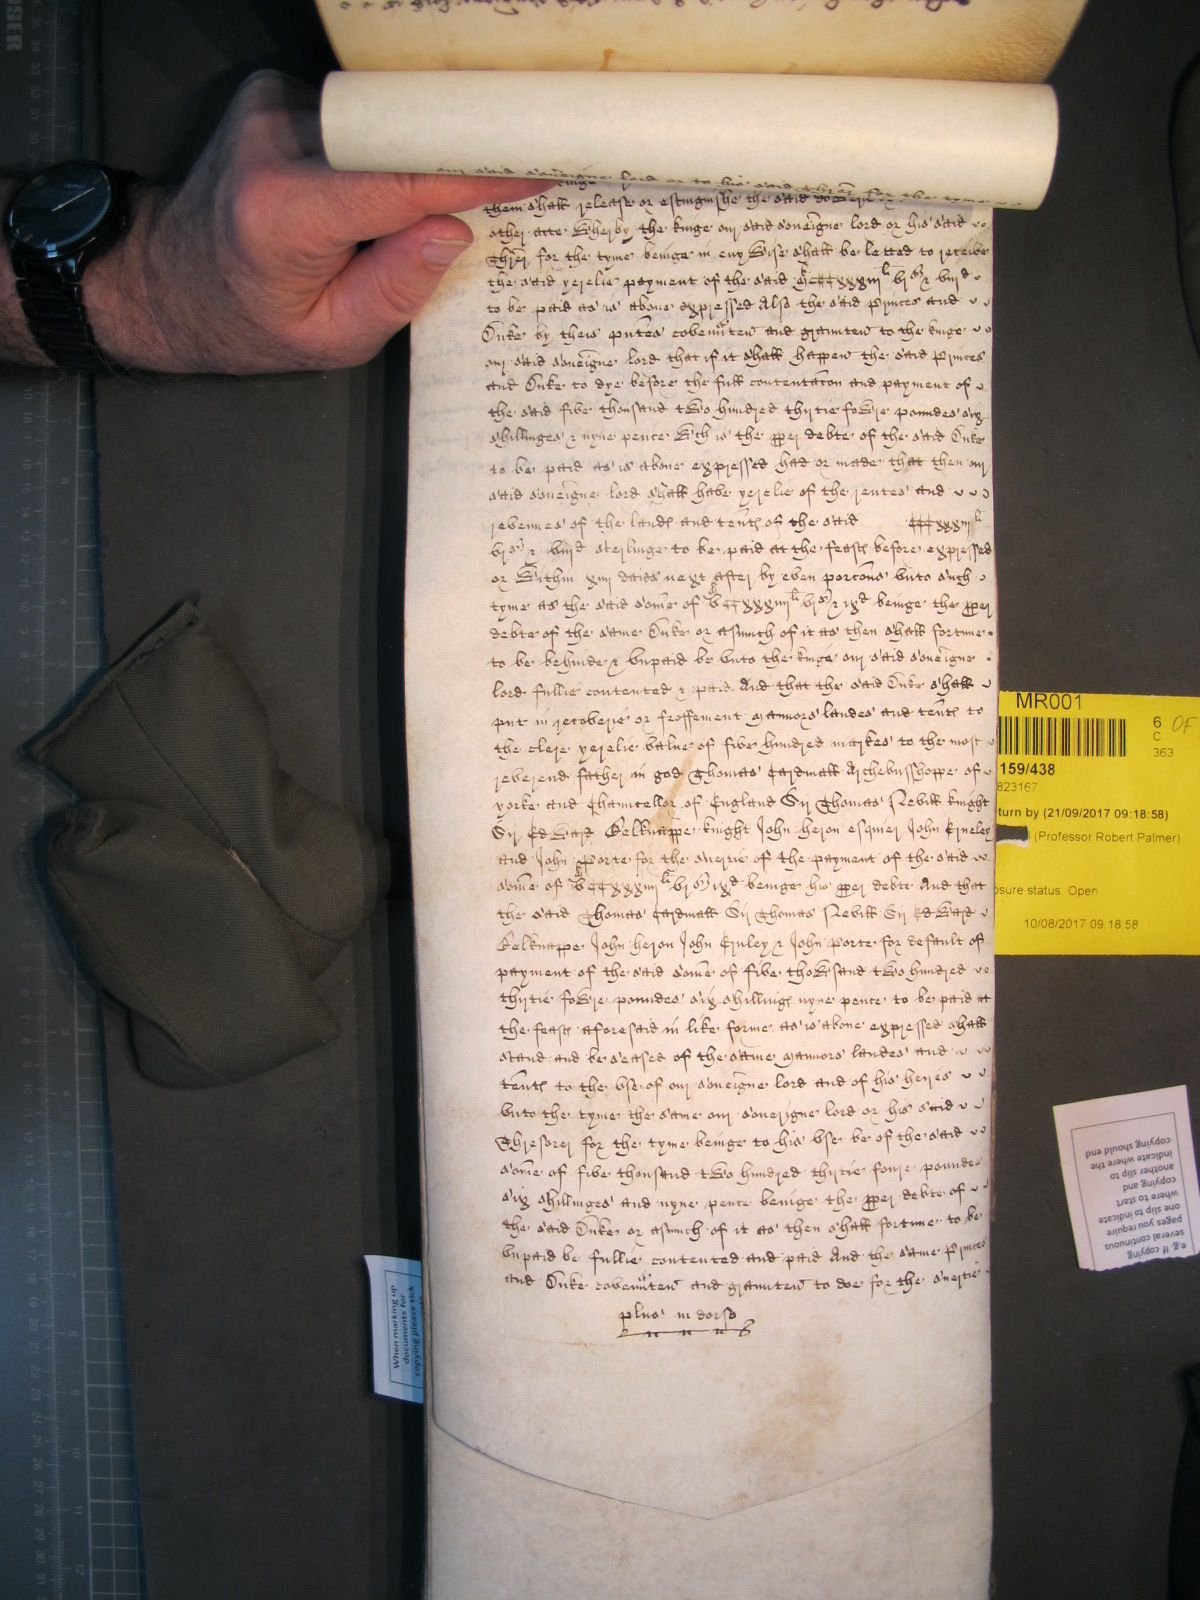 our said soueigne lord or to his said thier for the tyme
them shall release or estinguishe the said
other acte Wherby the kinge our said soueigne lord or his said
Thier for the tyme beinge in eny Wise shall be letted to receive
the said yerelie payment of the said vjs & viijd
to be paid as is aboue expressed Also the said Princes and
Duke by theis pntes covenanten and graunten to the kinge
our said soueigne lord that if it shall happen the said Princes
and Duke to dye before the full contentacon and payment of
the said five thousand tWo hundred thirtie foWre poundes six
shillinges & nyne pence Wch is the pper debte of the said Duke
to be paid as is aboue expressed had or made that then our
said soueigne lord shall have yerelie of the rentes and
revenues of the landes and tentes of the said ccccxxxiijli
vjs & viijd sterlinge to be paid at the feastes before expressed
or Within xiiij daies next after by even porcons vnto such
tyme as the said some of vjs & ixd beinge the pper
debte of the same Duke or asmuch of it as then shall fortune
to be behinde & vnpaid be vnto the kinge our said soueigne
lord fullie contented & paid And that the said Duke shall
put in recoverie or feoffement mannors landes and tentes to
the clere yerelie value of five hundred markes to the most
reverend father in god Thomas Cardinall Archebusshoppe of
yorke and Chancellor of England Sir Thomas Nevill knight
Sir EdWard Belknappe knight John heron esquier John Erneley
and John Porte for the suertie of the payment of the said
some of vjs ixd beinge his pper debte And that
the said Thomas Cardinall Sir Thomas Nevill Sir EdWard
Belknappe John heron John Ernley & John Porte for default of
payment of the said some of five thoWsand tWo hundred
thirtie foWre poundes six shillinges nyne pence to be paid at
the feastes aforesaid in like forme as is aboue expressed shall
stand and be seased of the same mannors landes and
tentes to the vse of our soueigne lord and of his heires
vnto the tyme the same our soueigne lord or his said
Thresorer for the tyme beinge to his vse be of the said
some of five thousand tWo hundred thirtie foure poundes
six shillinges and nyne pence beinge the pper debte of
the said Duke or asmuch of it as then shall fortune to be
vnpaid be fullie contented and paid And the same Princes
and Duke covenanten and graunten to doe for the suertie
plus in dorso
MR001
6
C
363
OF
159/438
823167
turn by (21/09/2017 09:18:58)
(Professor Robert Palmer)
osure status: Open
10/08/2017 09:18:58
e.g. If copying
several continuous
pages you require
one slip to indicate
where to start
copying and
another slip to
indicate where the
copying should end
When marking up
documents for
copying please tick